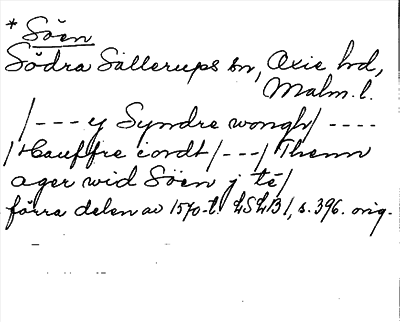 * Söen
Södra Sallerups sn, Oxie hd,
Malm. l.
/---y Syndre wongh/ ----
/Hauffre iordt/---/ Thenn
ager wid Söen j té/
förra delen av 1570-t. LSLB1, s. 396. orig.